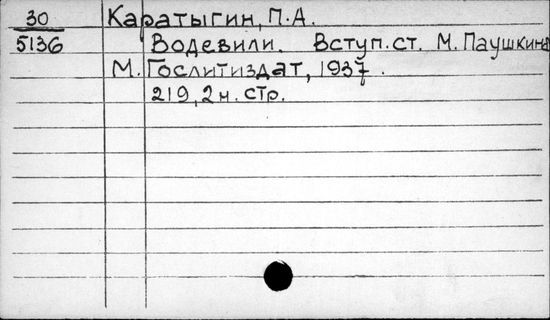 30 Каратыгин, П.А.
5136 Водевили. Вступ.ст. М. Паушкина
М. Гослитиздат, 1937.
219, 2 н. стр.